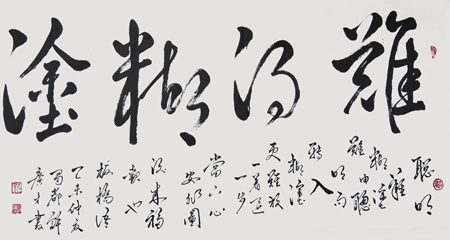 難得糊塗
聰明
難
糊塗
難由聰
明而
轉入
糊塗
更難放
一著退
一步
當下心
安非圖
後來福
報也
板橋語
乙未仲夏
蜀都鮮
書